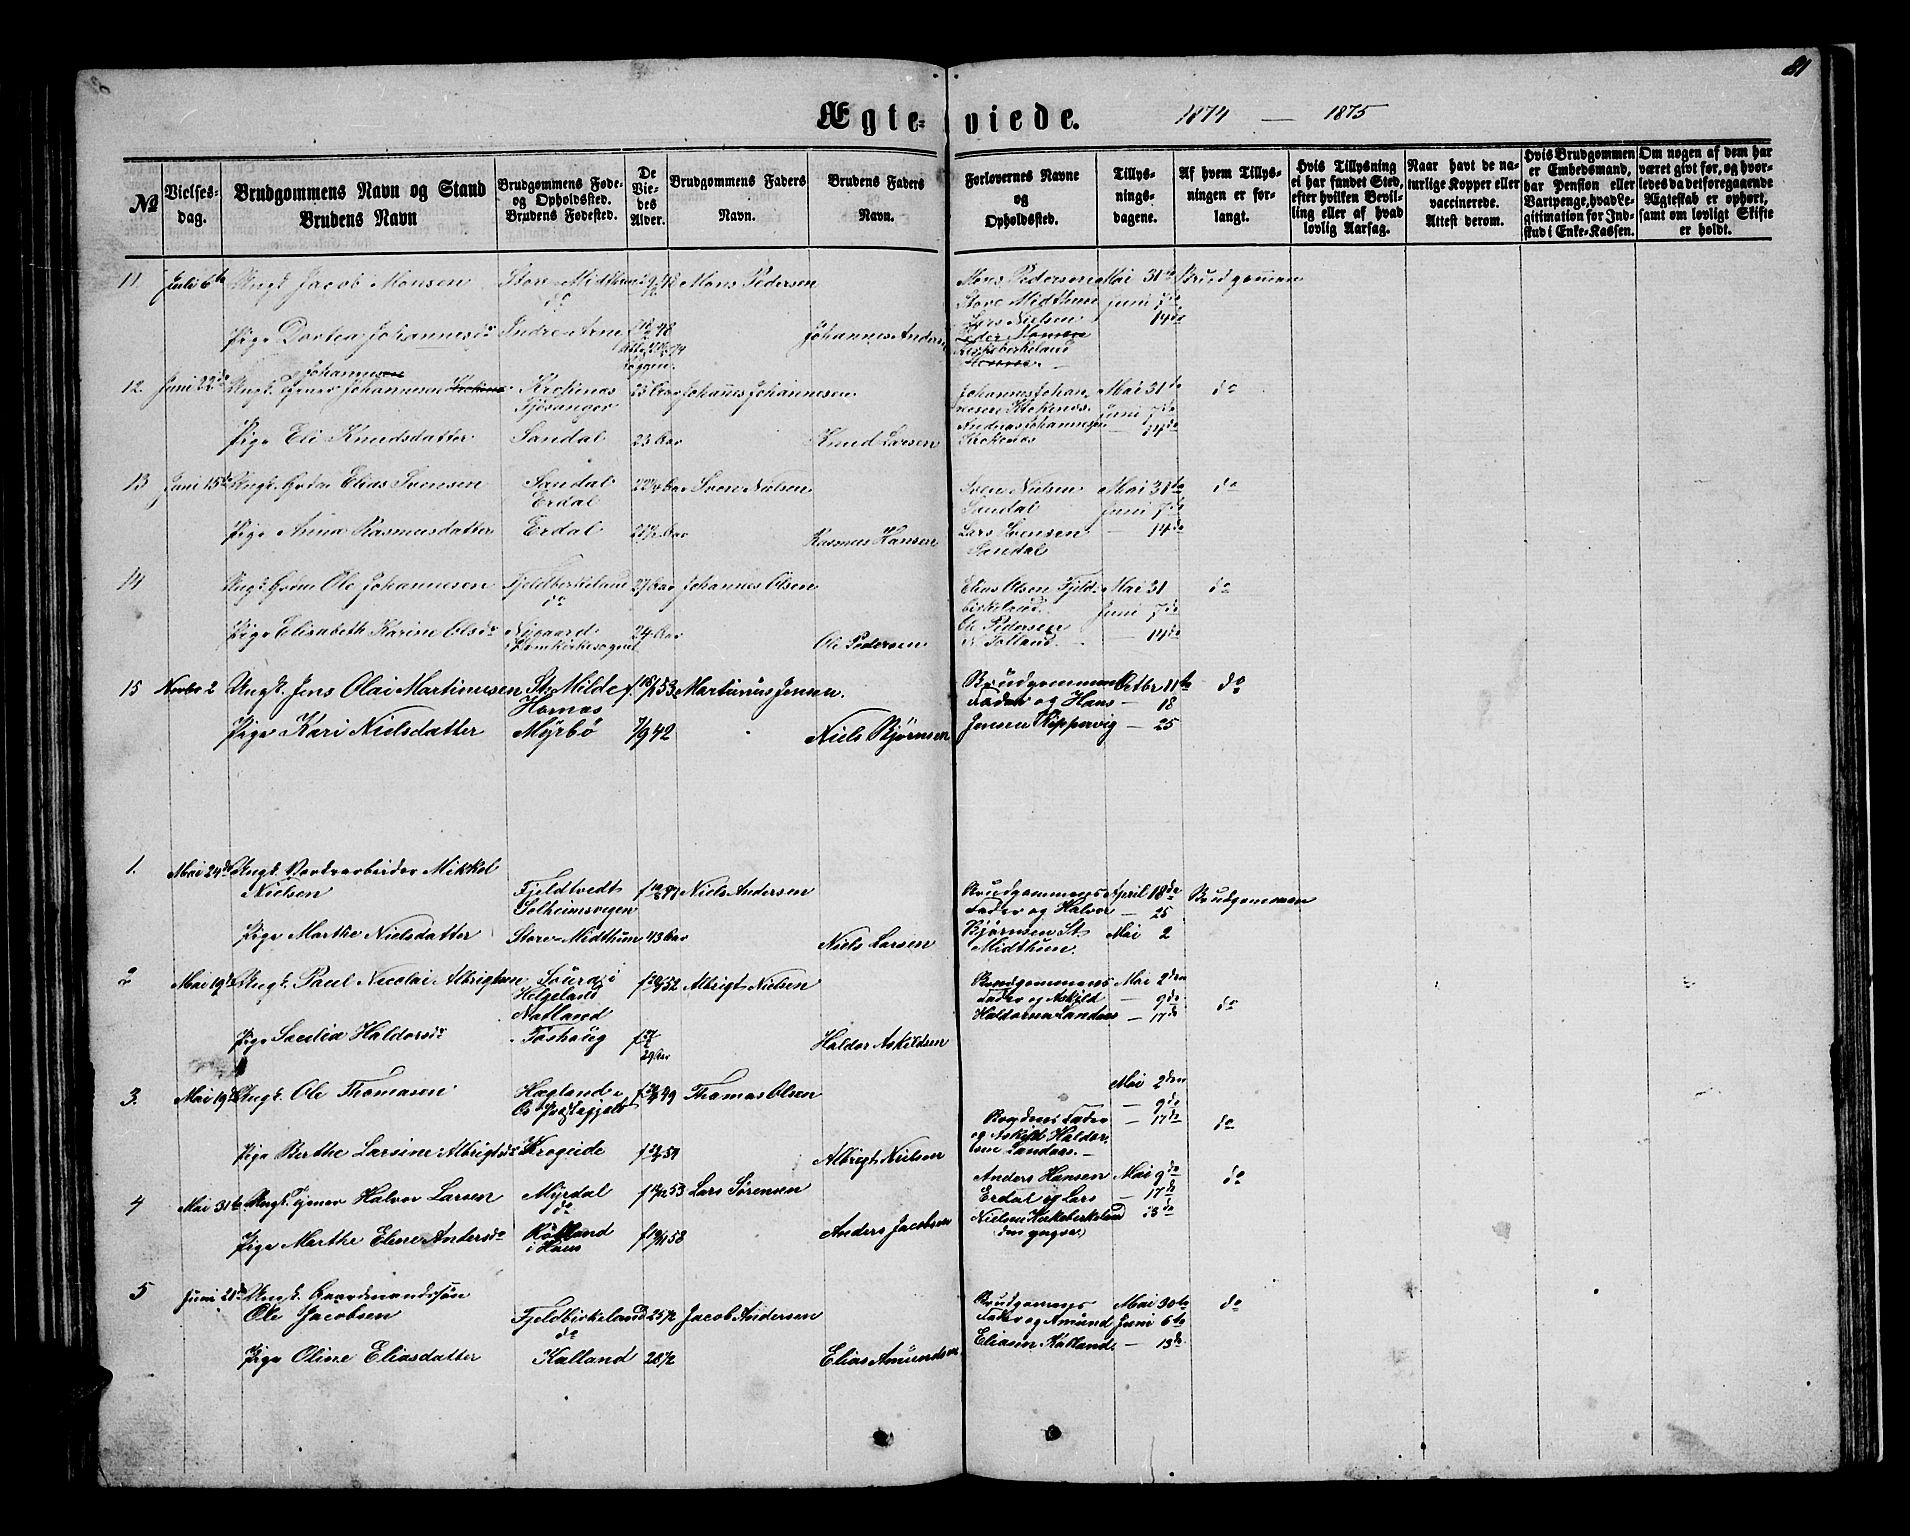 81
Ægte-viede.
1874 — 1875
No
Vielses-dag.
Brudgommens Navn og Stand
Brudens Navn
Brudgommens Føde- og Opholdssted.
Brudens Fødested.
De Viedes Alder.
Brudgommens Faders Navn.
Brudens Faders Navn.
Forlovernes Navne og Opholdssted.
Tillysningsdagene.
Af hvem Tillysningen er forlangt.
Hvis Tillysning ei har fundet Sted, efter hvilken Bevilling eller af hvad lovlig Aarsag.
Naar havt de naturlige Kopper eller vaccinerede. Attest derom.
Hvis Brudgommen er Embedsmand, har Pension eller Vartpenge, hvad Legitimation for Indskud i Enke-Kassen.
Om nogen af dem har været givt før, og hvorledes da det foregaaende Ægteskab er ophørt, samt om lovligt Skifte er holdt.
11. Juli 6te Ungk. Jacob Monsen Store-Midthun Mons Pedersen Mons Pedersen Mai 31te Brudgommen
do Store Midthun Juni 7de
Lars Nielsen 14de
Pige Dortea Johannesdr Indre-Arne 48 Johannes Anders
Kirkebirkeland
Johannesen
12. Juni 22de Ungk. Johannesen Krokenæs 25 Aar Johannes Johannesen Johannes Johan- Mai 31te do
Fjøsanger nesen Krokenæs Juni 7de
Andreas Johannesen 14de
Pige Eli Knudsdatter Sandal 23 Aar Knud Larsen Krokenæs
13 Juni 15de Ungk. Elias Svensen Sandal Aar Sven Nielsen Sven Nielsen Mai 31te do
Erdal Sandal Juni 7de
Pige Anna Rasmusdatter Erdal Aar Rasmus Hansen Lars Svensen — 14de
Sandal
14 Ungk. Ole Johannesen Fjeldbirkeland 27 Aar Johannes Olsen Elias Olsen Fjeld- Mai 31 do
do birkeland. Juni 7de
Pige Elisabeth Karine Olsdr Nygaard 24 Aar Ole Pedersen Ole Pedersen — 14de
Domkirkesognet
15 Novbr 2 Ungk. Jens Olai Martinusen St. Milde f. 53 Martinus Jensen. Brudgommens Octbr 11te do
Hornæs Fader og Hans — 18
Pige Kari Nielsdatter Myrbø 7/9 42 Niels Bjørnsen Jensen Skippervig — 25
1. Mai 24de Ungk. Mikkel
Nielsen Fjeldtvedt Niels Andersen Brudgommens April 18de Brudgommen
Solheimsvegen Fader og Halvor — 25
Pige Marthe Nielsdatter Store-Midthun 43 Aar Niels Larsen Bjørnsen St. Mai 2
Midthun.
2 Mai 19de Ungk. Paul Nicolai Albrigtsen i f 52 Albrigt Nielsen Brudgommens Mai 2den
Helgeland Fader og Askild — 9de do
Natland Haldorsen Landaas — 17de
Pige Haldorsdr Haldor Askildsen
3. Mai 19de Ungk. Ole Thomasen Hægland i f 49 Thomas Olsen Mai 2den
Os Præstegjeld — 9de
Brudens Fader — 17de do
Pige Berthe Larsine Albrigtsdr Krogeide Albrigt Nielsen og Askild Haldor-
sen Landaas.
4 Mai 31te Ungk. Tjener Halvor Larsen Myrdal f 53 Lars Sørensen Anders Hansen Mai 9de do
do Erdal og Lars — 17de
Pige Marthe Elene Andersdr i Haus f 58 Anders Jacobsen Nielsen Kirkebirkeland
5 Juni Ungk. Gaardmandssøn
Ole Jacobsen Fjeldbirkeland 25 1/2 Jacob Andersen Brudgommens Mai 30te do
do Fader og Amund Juni 6te
Pige Oline Eliasdatter Kalland 20 1/2 Elias Amundsen Eliasen Kalland — 13de